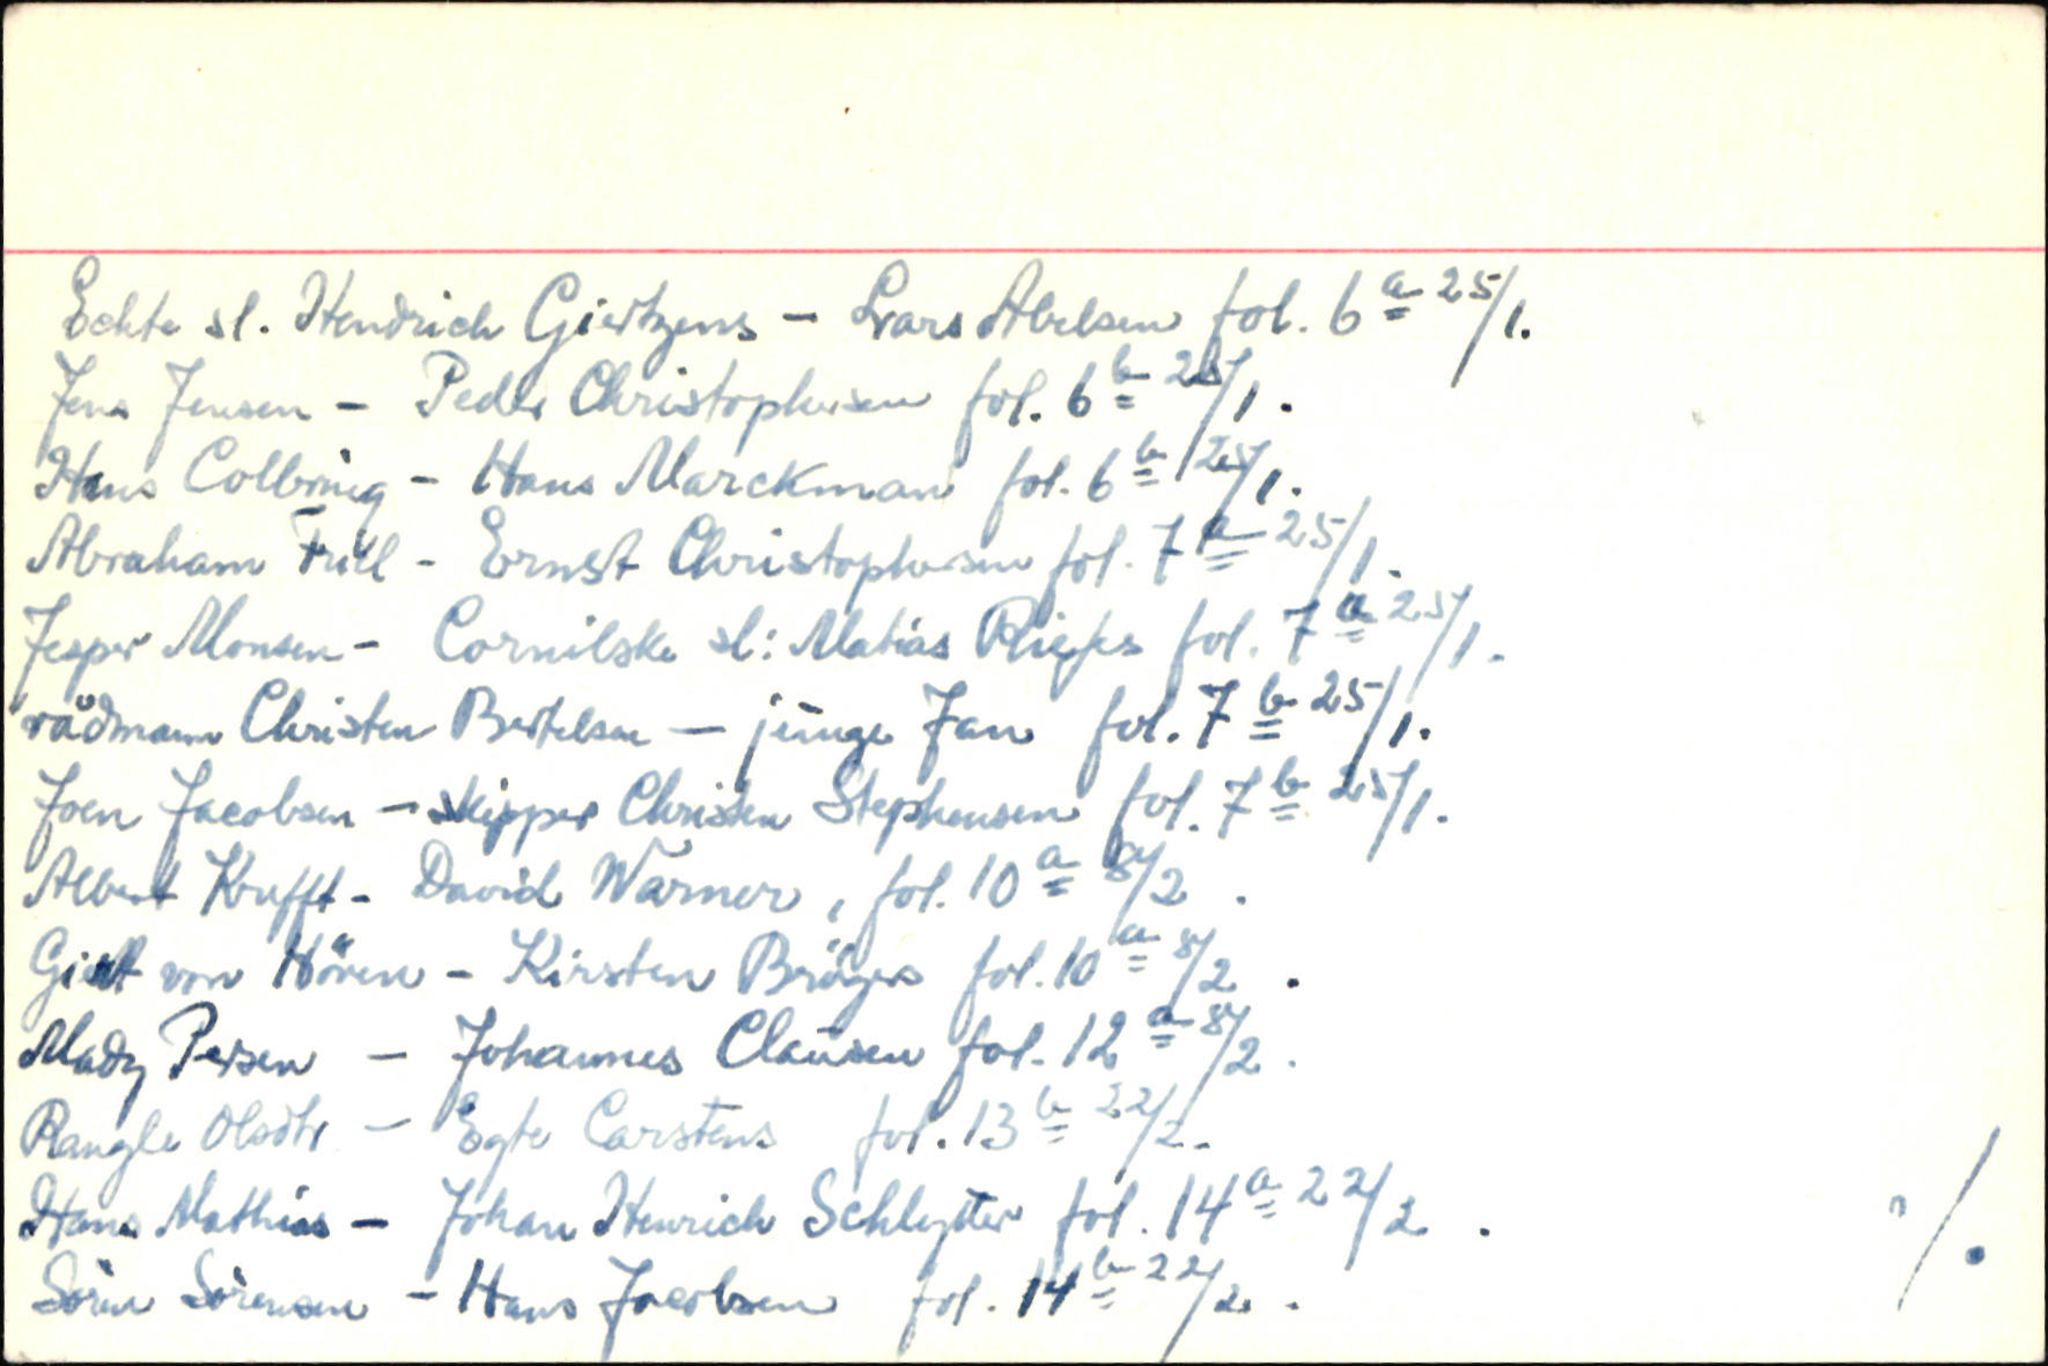 Echte sl. Hendrich Giertzens - Lars Abelsen fol. 6 a 25/1.
Jens Jensen - Peder Christophersen fol. 6 b 25/1.
Hans Colbring - Hans Marckman fol. 6 b 25/1.
Abraham Früll - Ernst Christophersen fol. 7 a 25/1.
Jesper Monsen - Cornilske sl: Matias Riefes fol. 7 a 25/1.
rådmann Christen Bertelsen - junge Jan fol. 7 b 25/1.
Joen Jacobsen - skipper Christen Stephensen fol. 7 b 25/1.
Albert Krufft - David Warner, fol. 10 a 8/2.
Giert von Hören - Kirsten Bröger fol. 10 a 8/2.
Madz Persen - Johannes Clausen fol. 12 a 8/2.
Rangle Olsdtr - Egte Carstens fol. 13 b 22/2.
Hans Mathias - Johan Henrich Schlytter fol. 14 a 22/2.
Sören Sörensen - Hans Jacobsen fol. 14 b 22/2. ./.